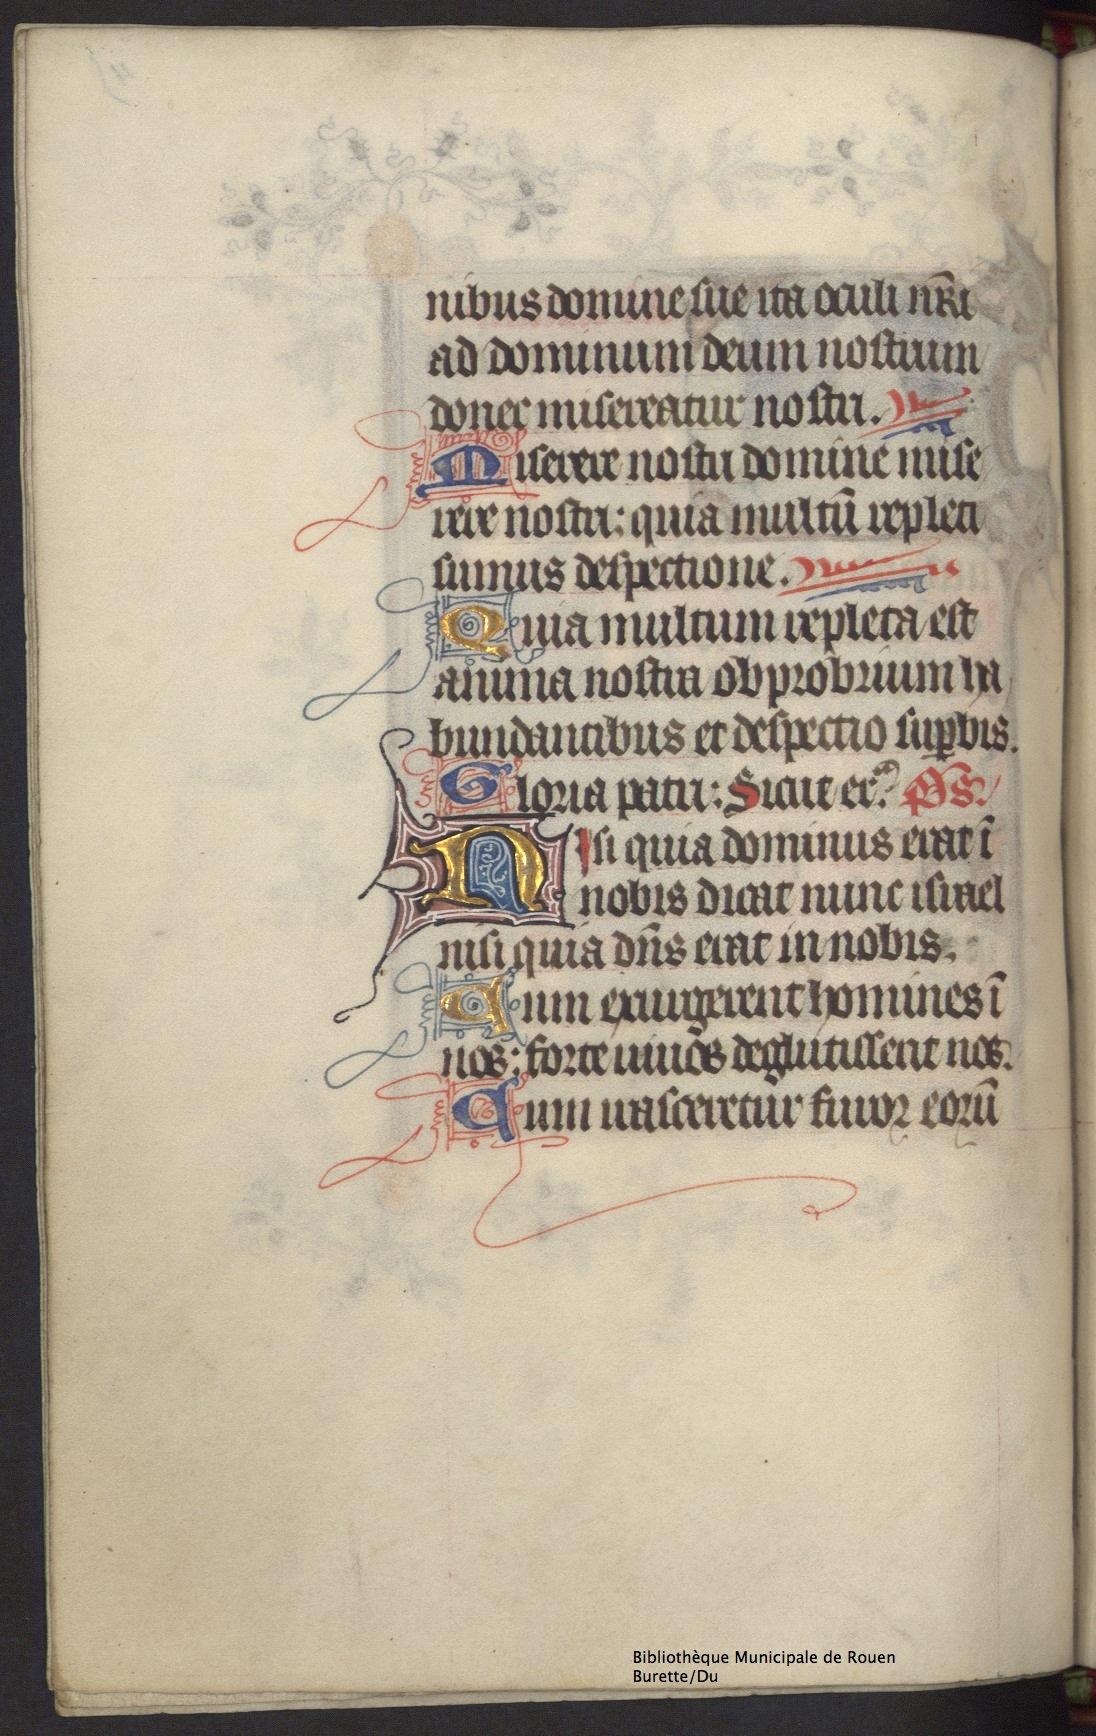 nibus domine sue ita oculi nr̄i
ad dominum deum nostrum
donec misereatur nostri.
Miserere nostri domine mise
rere nostri: quia multū repleti
sumus despectione.
Quia multum repleta est
anima nostra obprobrium ha
bundantibus et despectio suꝑbis.
Gloria patri: Sicut er.ͣ p̄s.
Nisi quia dominus erat ī
nobis dicat nunc israel
nisi quia dn̄s erat in nobis.
Cum exurgerent homines ī
nos: forte uiuos deglutissent nos.
Cum irasceretur furor eorū
Bibliothèque Municipale de Rouen
Burette/Du